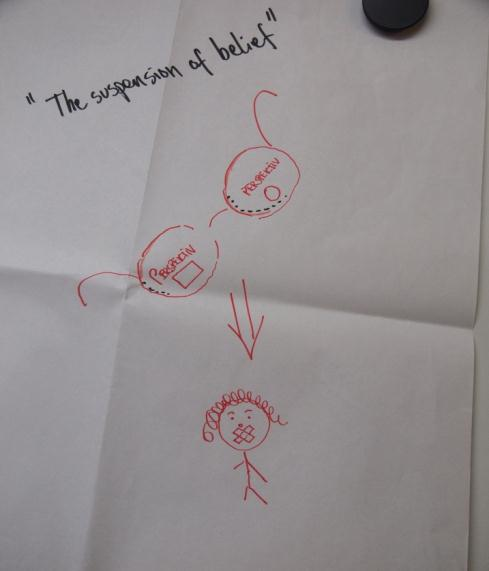 "The suspension of belief"
PERSPEKTIV
PERSPEKTIV